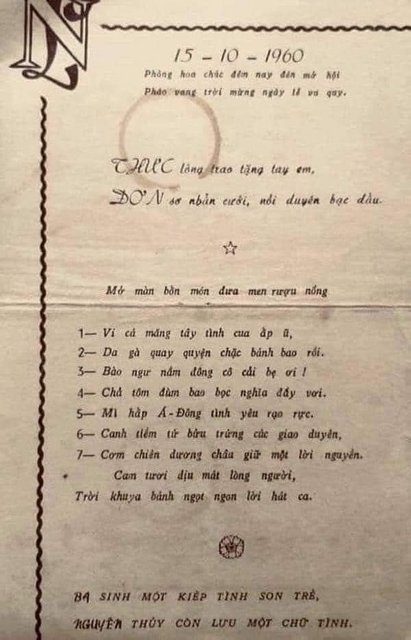 N
15 - 10 - 1960
Phòng hoa chúc đêm nay đèn mở hội
Pháo vang trời mừng ngày lễ vu quy.
THỰC lòng trao tặng tay em,
ĐƠN sơ nhẫn cưới, nối duyên bạc đầu.
Mở màn bốn món đưa men rượu nồng
1— Vi cá măng tây tình cua ấp ủ,
2— Da gà quay quyện chặc bánh bao rồi.
3— Bào ngư nấm đông cô cải bẹ ơi !
4— Chả tôm đùm bao bọc nghĩa đầy vơi.
5— Mì hấp Á-Đông tình yêu rạo rực.
6— Canh tiềm tứ bửu trứng cúc giao duyên,
7— Cơm chiên dương châu giữ một lời nguyền.
Cam tươi dịu mát lòng người,
Trời khuya bánh ngọt ngon lời hát ca.
84 SINH MỘT KIẾP TÌNH SON TRẺ,
NGUYÊN THỦY CÒN LƯU MỘT CHỮ TÌNH.